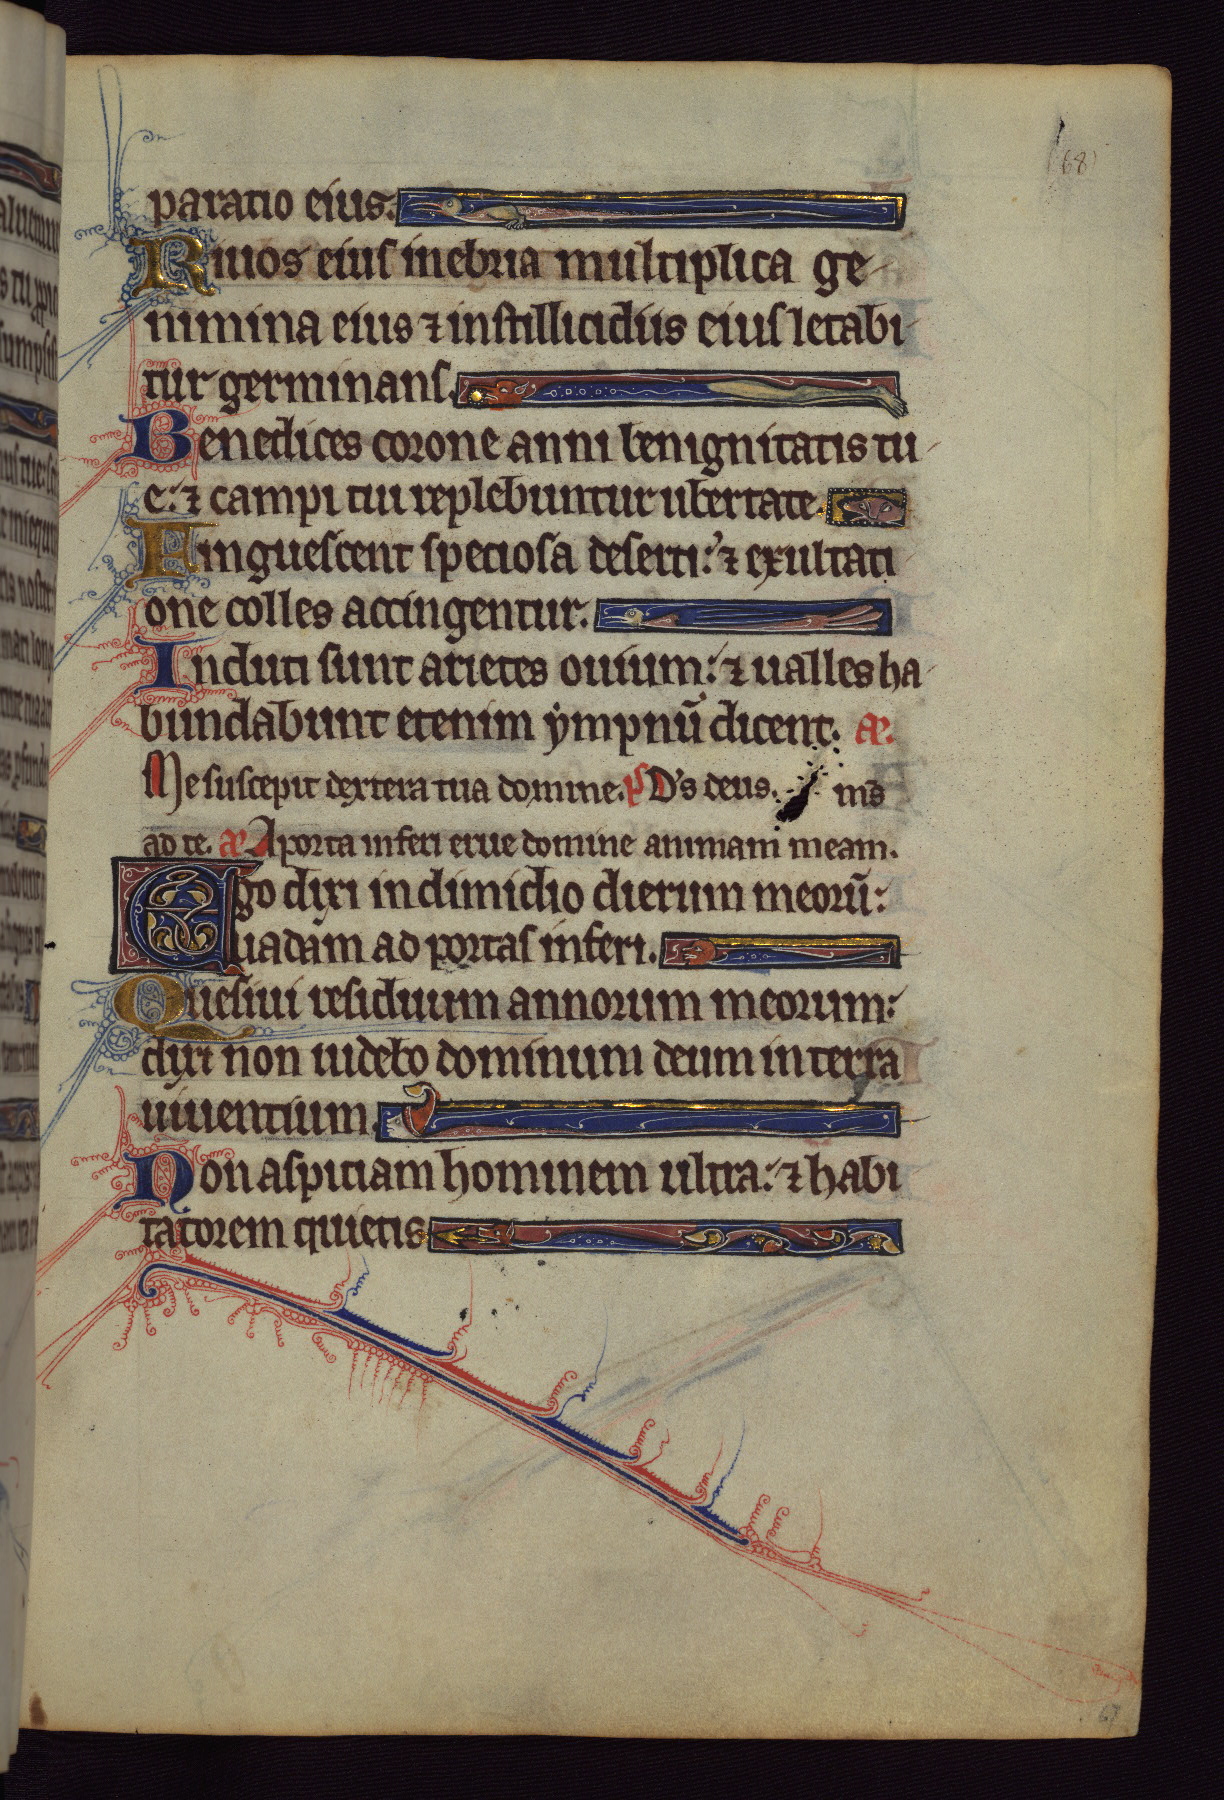 68
paratio eius.
Riuos eius inebria multiplica ge
nimina eius ⁊ instillicidiis eius letabi
tur germinans.
Benedices corone anni benignitatis tu
e: ⁊ campi tui replebuntur ubertate.
Pinguescent speciosa deserti: ⁊ exultati
one colles accingentur.
Induti sunt arietes ouium: ⁊ ualles ha
bundabunt etenim ympnū dicent. 
Me suscepit dextera tua domine. D's deus. ms
ad te. A porta inferi erue domine animam meam.
Ego dixi in dimidio dierum meorū:
uadam ad portas inferi.
Quesiui residuum annorum meorum:
dixi non uidebo dominum deum in terra
uiuentium.
Non aspiciam hominem ultra: ⁊ habi
tatorem quietis
67